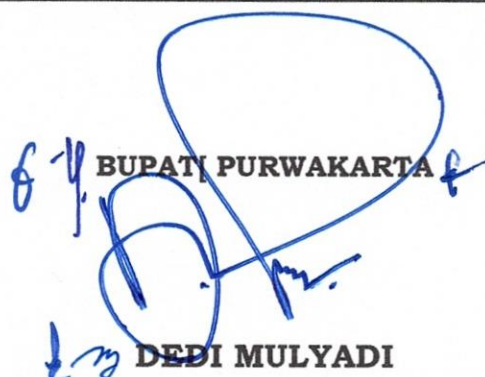 BUPATI PURWAKARTA
DEDI MULYADI